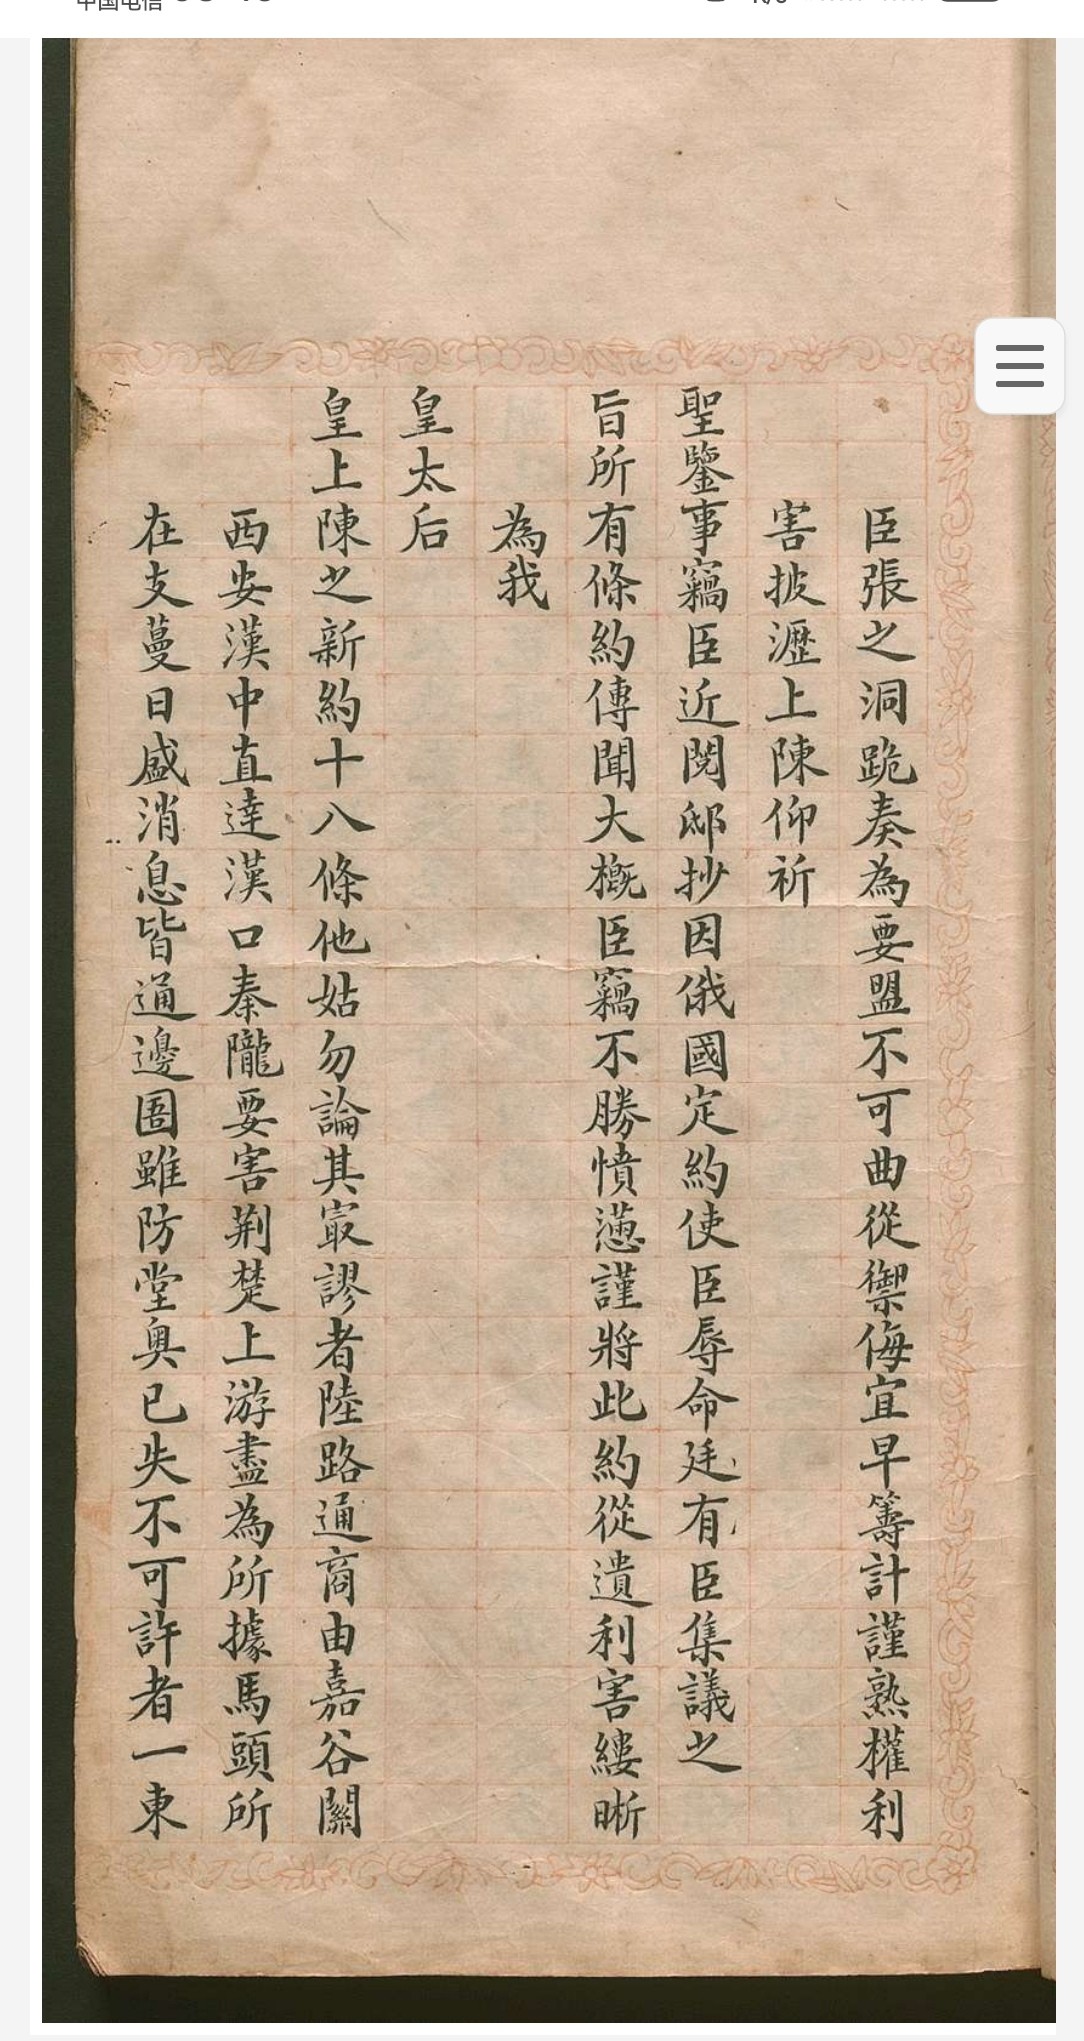 臣張之洞跪奏為要盟不可曲從禦侮宜早籌計謹熟權利
害披瀝上陳仰祈
聖鑒事竊臣近閱邸抄因俄國定約使臣辱命廷有臣集議之
旨所有條約傳聞大概臣竊不勝憤懣謹將此約從遺利害縷晰
為我
皇太后
皇上陳之新約十八條他姑勿論其寂謬者陸路通商由嘉谷關
西安漢中直達漢口秦隴要害荆楚上游盡為所據馬頭所
在支蔓日盛消息皆通邊圉雖防堂奥已失不可許者一東